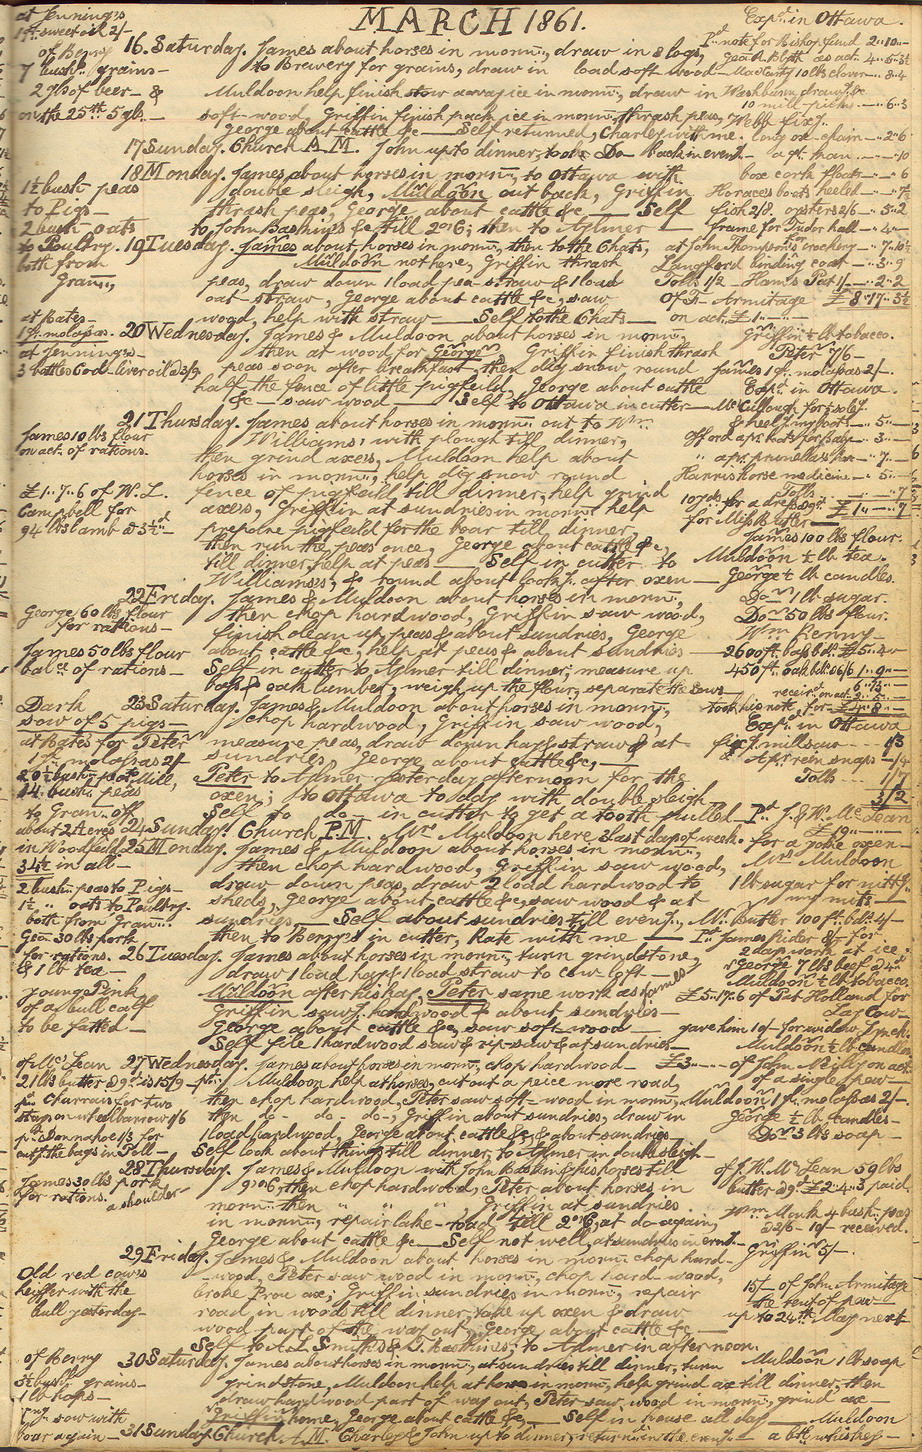 MARCH 1861.
at Jennings
1 pt. sweet oil 2/-
of Berry
7 bush. grains-
2 gls of beer - &
on the 25th 5 gl.
16. Saturday. James about horses in morn., draw in 8 logs,
to Brewery for grains, draw in load soft wood
Muldoon help finish stow away ice in morn., draw in
soft-wood, Griffin finish pack ice in morn., thrash peas,
George about cattle &c — Self returned, Charley with me.
17 Sunday. Church A.M. John up to dinner, took Do back in even.
1½ bush peas
to Pigs -
2 bush oats
to Poultry.
both from
Gran.,
18 Monday. James about horses in morn., to Ottawa with
double sleigh, Muldoon out back, Griffin
thrash peas, George about cattle &c — Self
to John Baskins &c till 2 o'c; then to Aylmer
19 Tuesday. James about horses in morn., then to the Chats,
Muldoon not here, Griffin thrash
peas, draw down 1 load pea straw & 1 load
oat-straw, George about cattle &c, saw
wood, help with straw — Self to the Chats —
at Bates -
1 gl. molasses.
at Jennings -
3 bottles Cod-liver oil @ 3/9
20 Wednesday. James & Muldoon about horses in morn.,
then at wood for George, Griffin finish thrash
peas soon after breakfast, then dig snow round
half the fence of little pigfeild, George about cattle
&c — saw wood — Self to Ottawa in cutter —
James 10 lbs flour
on act. of rations.
£1..7..6 of W. L.
Campbell for
94 lbs lamb @ 3½d
21 Thursday. James about horses in morn. out to Wm.
Williams, with plough till dinner,
then grind axes, Muldoon help about
horses in morn., help dig snow round
fence of pigfeild till dinner, help grind
axes, Griffin at sundries in morn. help
prepare pigfeild for the boar till dinner
then run the peas once, George about cattle &c,
till dinner, help at peas — Self in cutter to
Williams's, & round about look'g after oxen —
George 60 lbs flour
for rations -
James 50 lbs flour
balce of rations -
22 Friday. James & Muldoon about horses in morn.,
then chop hardwood, Griffin saw wood,
finish clean up peas & about sundries, George
about cattle &c, help at peas & about sundries —
Self in cutter to Aylmer till dinner, measure up
bass & oak lumber, weigh up the flour, separate the sows
Dark
sow of 5 pigs -
at Bates for Peter
1 pt. molasses 2/
14 bush. peas
to Gran. off
about 2 Acres
in Woodfeild
34½ in all
23 Saturday. James & Muldoon about horses in morn.,
chop hardwood, Griffin saw wood,
measure peas, draw down hay & straw & at
sundries, George about cattle &c, —
Peter to Aylmer yesterday afternoon for the
oxen; to Ottawa today with double sleigh —
Self to do in cutter to get a tooth pulled
24 Sunday. Church P.M. Mrs Muldoon here 3 last days of week.
2 bush. peas to Pigs -
1½ " oats to Poultry.
both from Gran.
Geo. 30 lbs pork
for rations.
& 1 lb tea -
25 Monday. James & Muldoon about horses in morn.,
then chop hardwood, Griffin saw wood,
draw down peas, draw 2 load hardwood to
sheds, George about cattle &c, saw wood & at
sundries — Self about sundries till even.,
then to Berry's in cutter, Kate with me —
young Pink
of a bull calf
to be fatted -
26 Tuesday. James about horses in morn., turn grindstone,
draw 1 load hay & 1 load straw to cow loft -
Muldoon after his hay, Peter same work as James
Griffin saw hardwood & about sundries -
George about cattle &c, saw soft wood -
Self file 1 hardwood saw & rip-saw & at sundries -
of McLean
21 lbs butter @ 9d is 15/9
pd. Charrais for two
straps on wheelbarrow 1/6
27 Wednesday. James about horses in morn., chop hardwood -
Muldoon help at horses, cut out a peice more road,
then chop hardwood, Peter saw soft-wood in morn.,
then do- do- do-, Griffin about sundries, draw in
1 load hardwood, George about cattle &c, & about sundries -
Self look about things till dinner, to Aylmer in double sleigh -
James 30 lbs pork
for rations. a shoulder
28 Thursday. James & Muldoon with John Baskin & his horses till
9 o'c, then chop hardwood, Peter about horses in
morn., then " " " Griffin at sundries
in morn., repair lake-road till 2 o'c, at do again,
George about cattle &c — Self not well, at sundries in even.
Old red cow's
heiffer with the
bull yesterday -
29 Friday. James & Muldoon about horses in morn. chop hard
-wood, Peter saw wood in morn., chop hard-wood,
broke Prou ax, Griffin sundries in morn., repair
road in woods till dinner, yoke up oxen & draw
wood part of the way out, George about cattle &c —
Self to A. L. Smith's & T. Haskins; to Aylmer in afternoon.
of Berry
3½ bush. grains -
1 lb hops -
yng. sow with
boar again -
30 Saturday. James about horses in morn., at sundries till dinner, turn
grindstone, Muldoon help at horses in morn., help grind ax till dinner, then
draw hardwood part of way out, Peter saw wood in morn., grind ax —
Griffin home, George about cattle &c, — Self in house all day —
31 Sunday. Church A.M. Charley & John up to dinner, return'd in the even.
Exps. in Ottawa.
Pd. note for Bishop fund 2..10..-
Geo. R. Blyth as act. 4..5..3½
MacCarty 10 lbs clover ..8..4
Washburn, draw'g &c
10 mill picks -..6..3
Webb fix'g
long ox-chain -..2..6
box earth floats -..-..6
Horaces boots heeled -..-..7½
fish 2/8, oysters 2/6 -..5..2
frame for Tudor hall -..4..-
at John Thompson's crockery -..7..10½
Langford binding coat -..3..9
Tolls 1/2 - Ham's Pat 1/- -..2..2
£8..17..3½
Of Dr. Armitage
on act. £1..-..-
Griffin ½ lb tobacco.
Peter 7/6 -
James 1 gl. molasses 2/-
Exps. in Ottawa.
McCullough for sole'g
& heel'g my boots -..5..-
Offord a pr. boots for baby -..3..-
" a pr. prunella shoes -..7..-
Harris horse medicine -..5..-
Tolls
10 yds. for a dress
for Miss Lister
James 100 lbs flour.
Muldoon ½ lb tea.
George 1 lb candles.
Do. 1 lb sugar.
Do. 50 lbs flour.
Wm Kenny -
2600 ft. bass bds. £5..4..-
450 ft. oak bds. @ 6/6 1..9..-
6..13..-
receivd. on act. 2..5..-
took his note, for £4..8..-
Exps. in Ottawa
fix'g mill saw - 1/3
& A pr. rein snaps -/4
Tolls - 1/7
3/2
Pd. J. & W. McLean
£19..-..-
for a yoke oxen -
Mrs Muldoon
1 lb sugar for nitt'g
my mits -
Mr. Butter 100 ft. bds. 4/-
Pd. James Rider 8/- for
2 days work at ice.
George 7 lbs beef @ 4d
Muldoon ½ lb tobacco.
£5..17..6 of Pat Holland for
Lag Cow -
gave him 1d. for widow Lynch.
Muldoon ½ lb candles
£3..-..- of John Neill on act.
of a single pew -
Muldoon 1 gl. molasses 2/-
George ½ lb candles -
Do. 3 lbs soap -
of J. W. McLean 59 lbs
butter @ 9d £2..4..3 paid.
Wm Monk 4 bush. peas
@ 2/6 - 10/- received.
Griffin 5/-
15/- of John Armitage
the rent of pew
up to 24th May next
Muldoon 1 lb soap
Muldoon
a btl. whiskey -